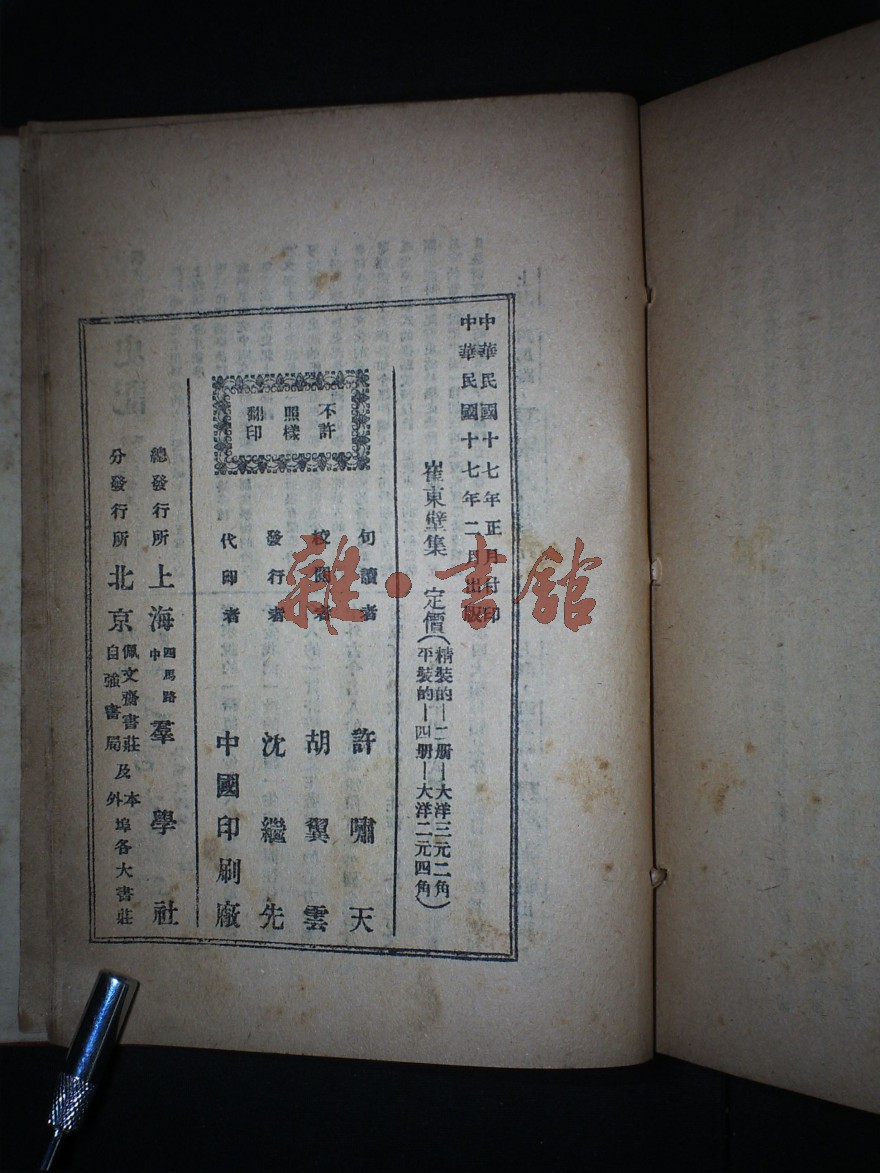 中華民國十七年正月付印
中華民國十七年二月出版
崔東壁集 定價(精裝的—二册—大洋三元二角
平裝的—四册—大洋二元四角)
不許
照樣
翻印
句讀者 許嘯天
校閱者 胡翼雲
發行者 沈繼先
代印者 中國印刷廠
總發行所 上海四馬路中 羣學社
分發行所 北京佩文齋書莊自強書局及本外埠各大書莊
雜·書館